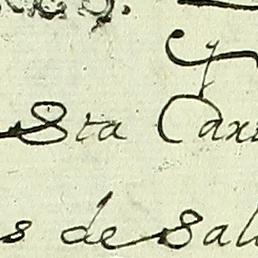 y
Sta Caxi
s de Sal